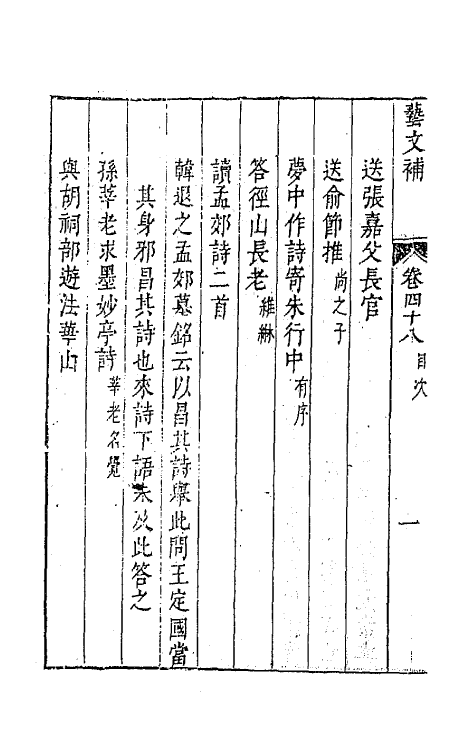 藝文補 卷四十八 目次 一
送張嘉父長官
送俞節推 尚之子
夢中作詩寄朱行中 有序
答徑山長老 維琳
讀孟郊詩二首
韓退之孟郊墓銘云以昌其詩舉此問王定國當
其身邪昌其詩也來詩下語未及此答之
孫莘老求墨妙亭詩 莘老名覺
與胡祠部遊法華山